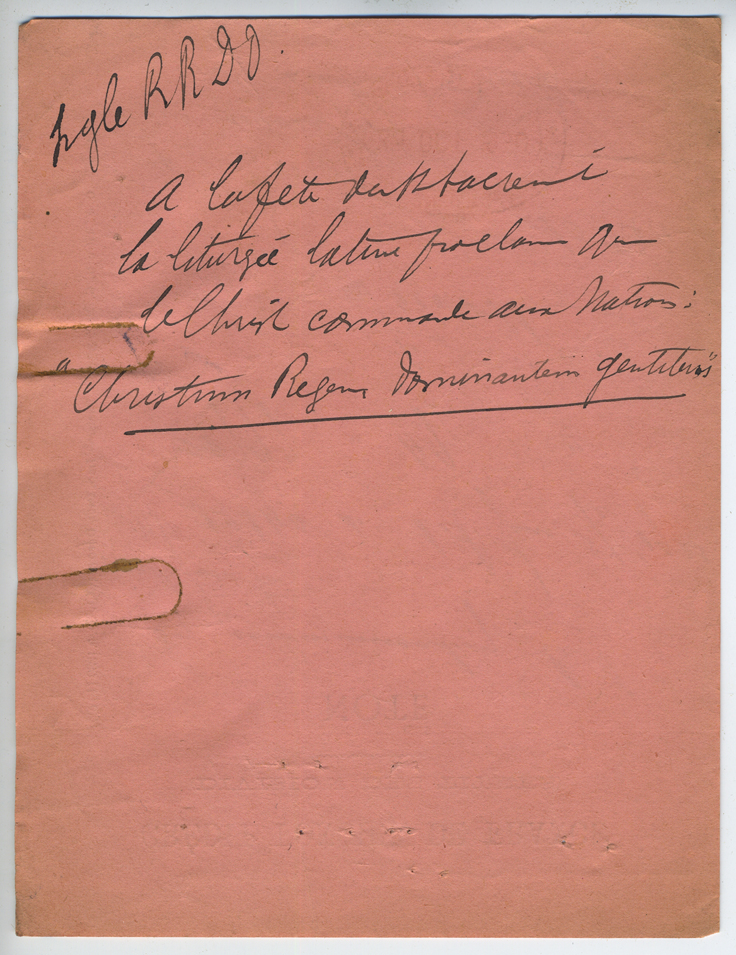 pgle RRDD.
A la fête du St Sacrement
la liturgie latine proclame que
le Christ commande aux Nations:
"Christum Regem dominantem gentibus"